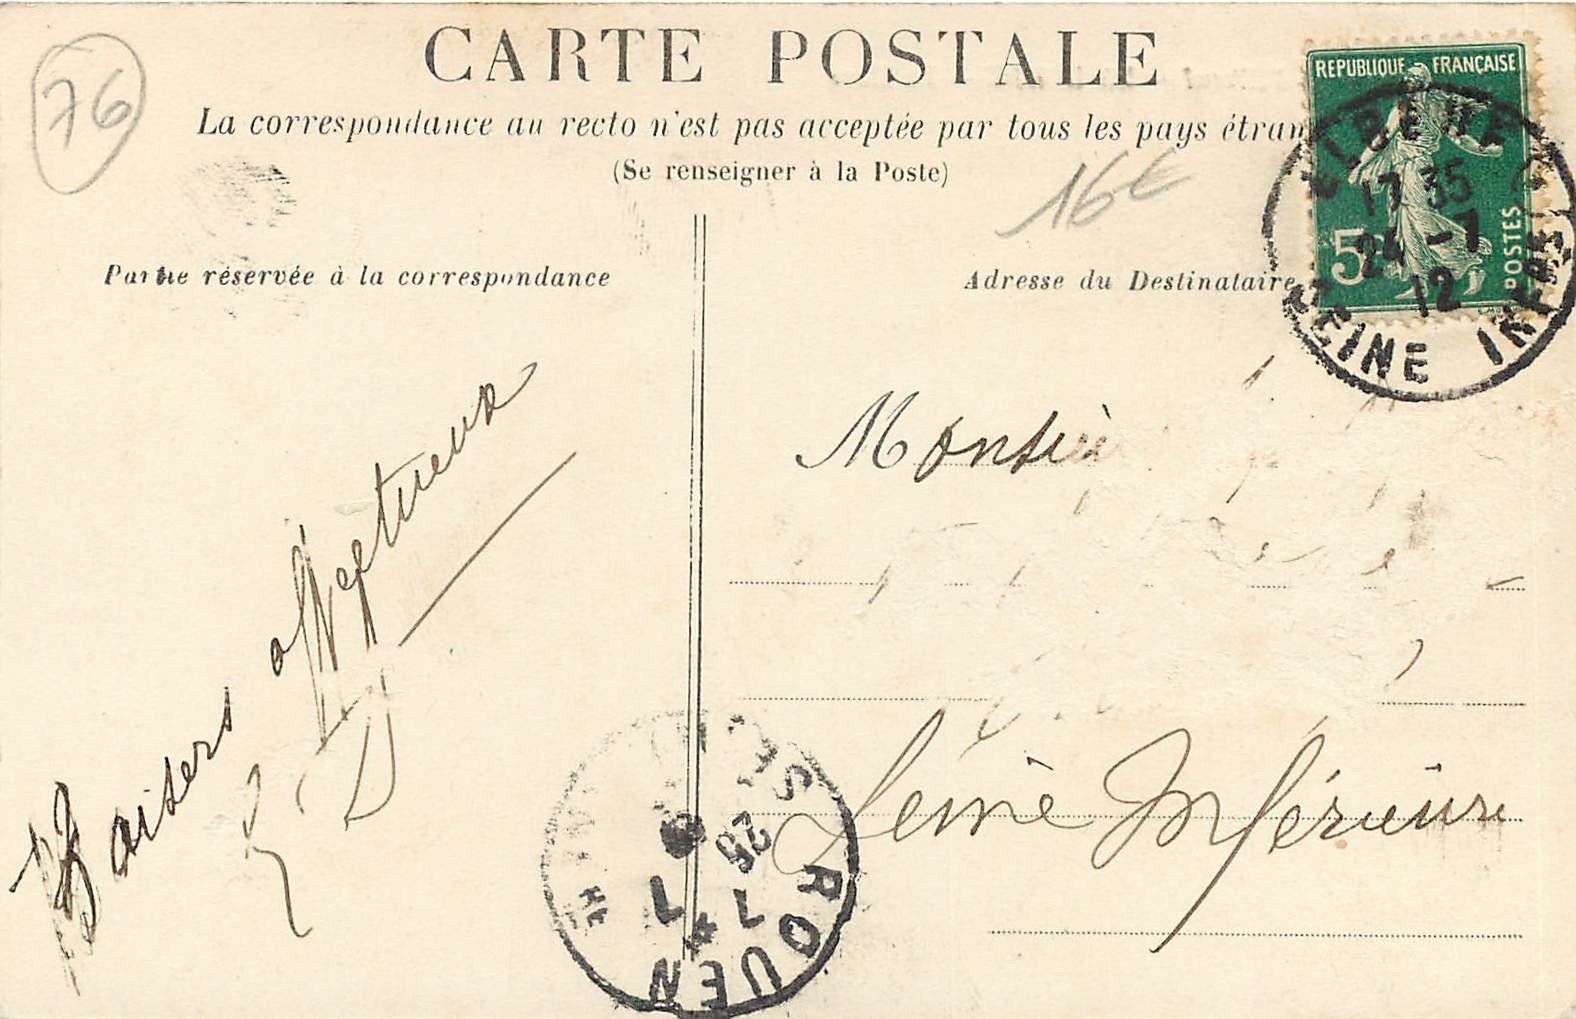 76
CARTE POSTALE
La correspondance au recto n'est pas acceptée par tous les pays étran
(Se renseigner à la Poste)
16€
REPUBLIQUE FRANÇAISE
5c
POSTES
ELBEUF
17 35
24 -7
12
SEINE INFRE
Partie réservée à la correspondance
Adresse du Destinataire
Baisers affectueux
Monsi
Seine Inférieure
ROUEN
25
7